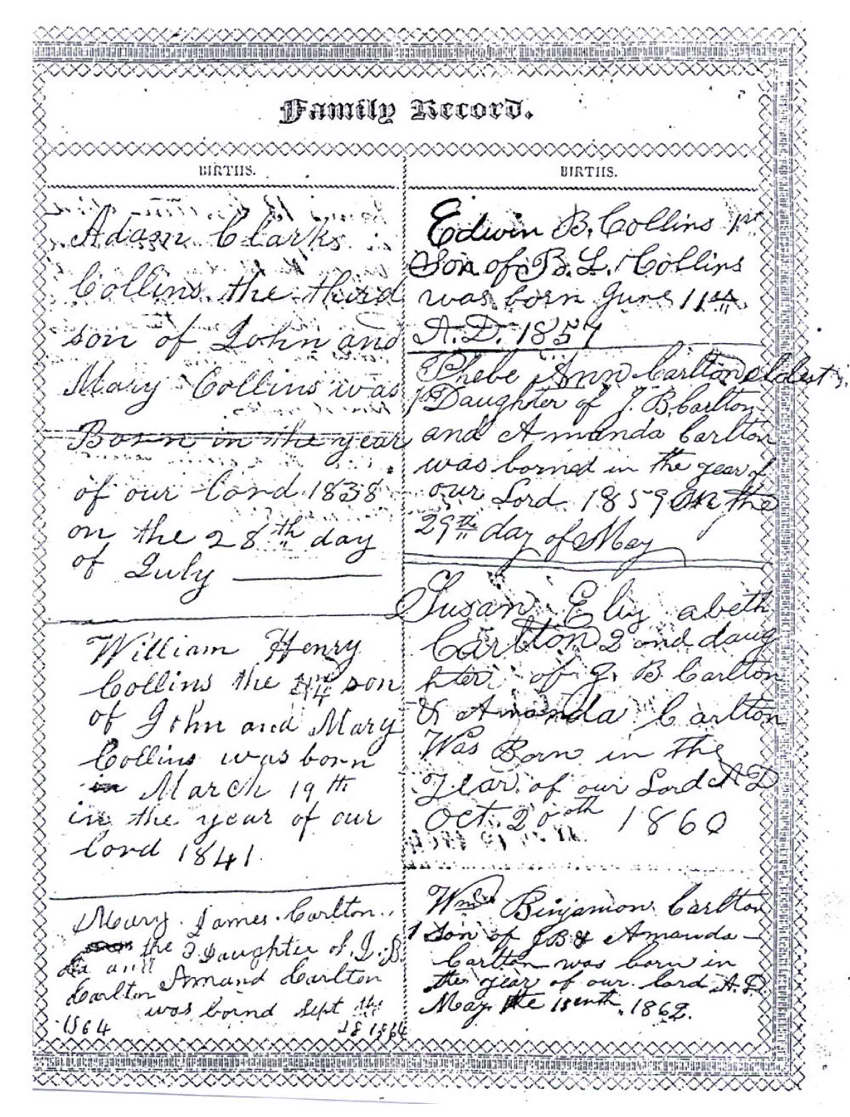 Family Record.
BIRTHS.
Adam Clarks
Collins the third
son of John and
Mary Collins was
Born in the year
of our lord 1838
on the 28th day
of July
William Henry
Collins the 4 son
of John and Mary
Collins was born
in March 19th
in the year of our
lord 1841
Mary James Carlton
the 3 Daughter of J. B.
and
Carlton Amand Carlton
was bornd Sept the
1864 28 1864
BIRTHS.
Edwin B. Collins 1st
Son of B. L. Collins
was born June 11th
A.D. 1857
Phebe Ann Carlton eldest
1 Daughter of J. B. Carlton
and Amanda Carlton
was borned in the year of
our Lord 1859 On the
29th day of May
Susan Elizabeth
Carlton 2 ond daug
hter of J. B Carlton
& Amanda Carlton
Was Born in the
Year of our Lord AD
Oct. 20oth 1860
Wm Binjamon Carlton
1 Son of JB & Amanda
Carlton was born in
the year of our lord A.D.
May the 18enth, 1862.